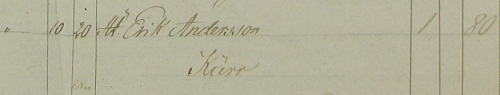 " 10 20 At Erik Andersson 1 80
Kürr